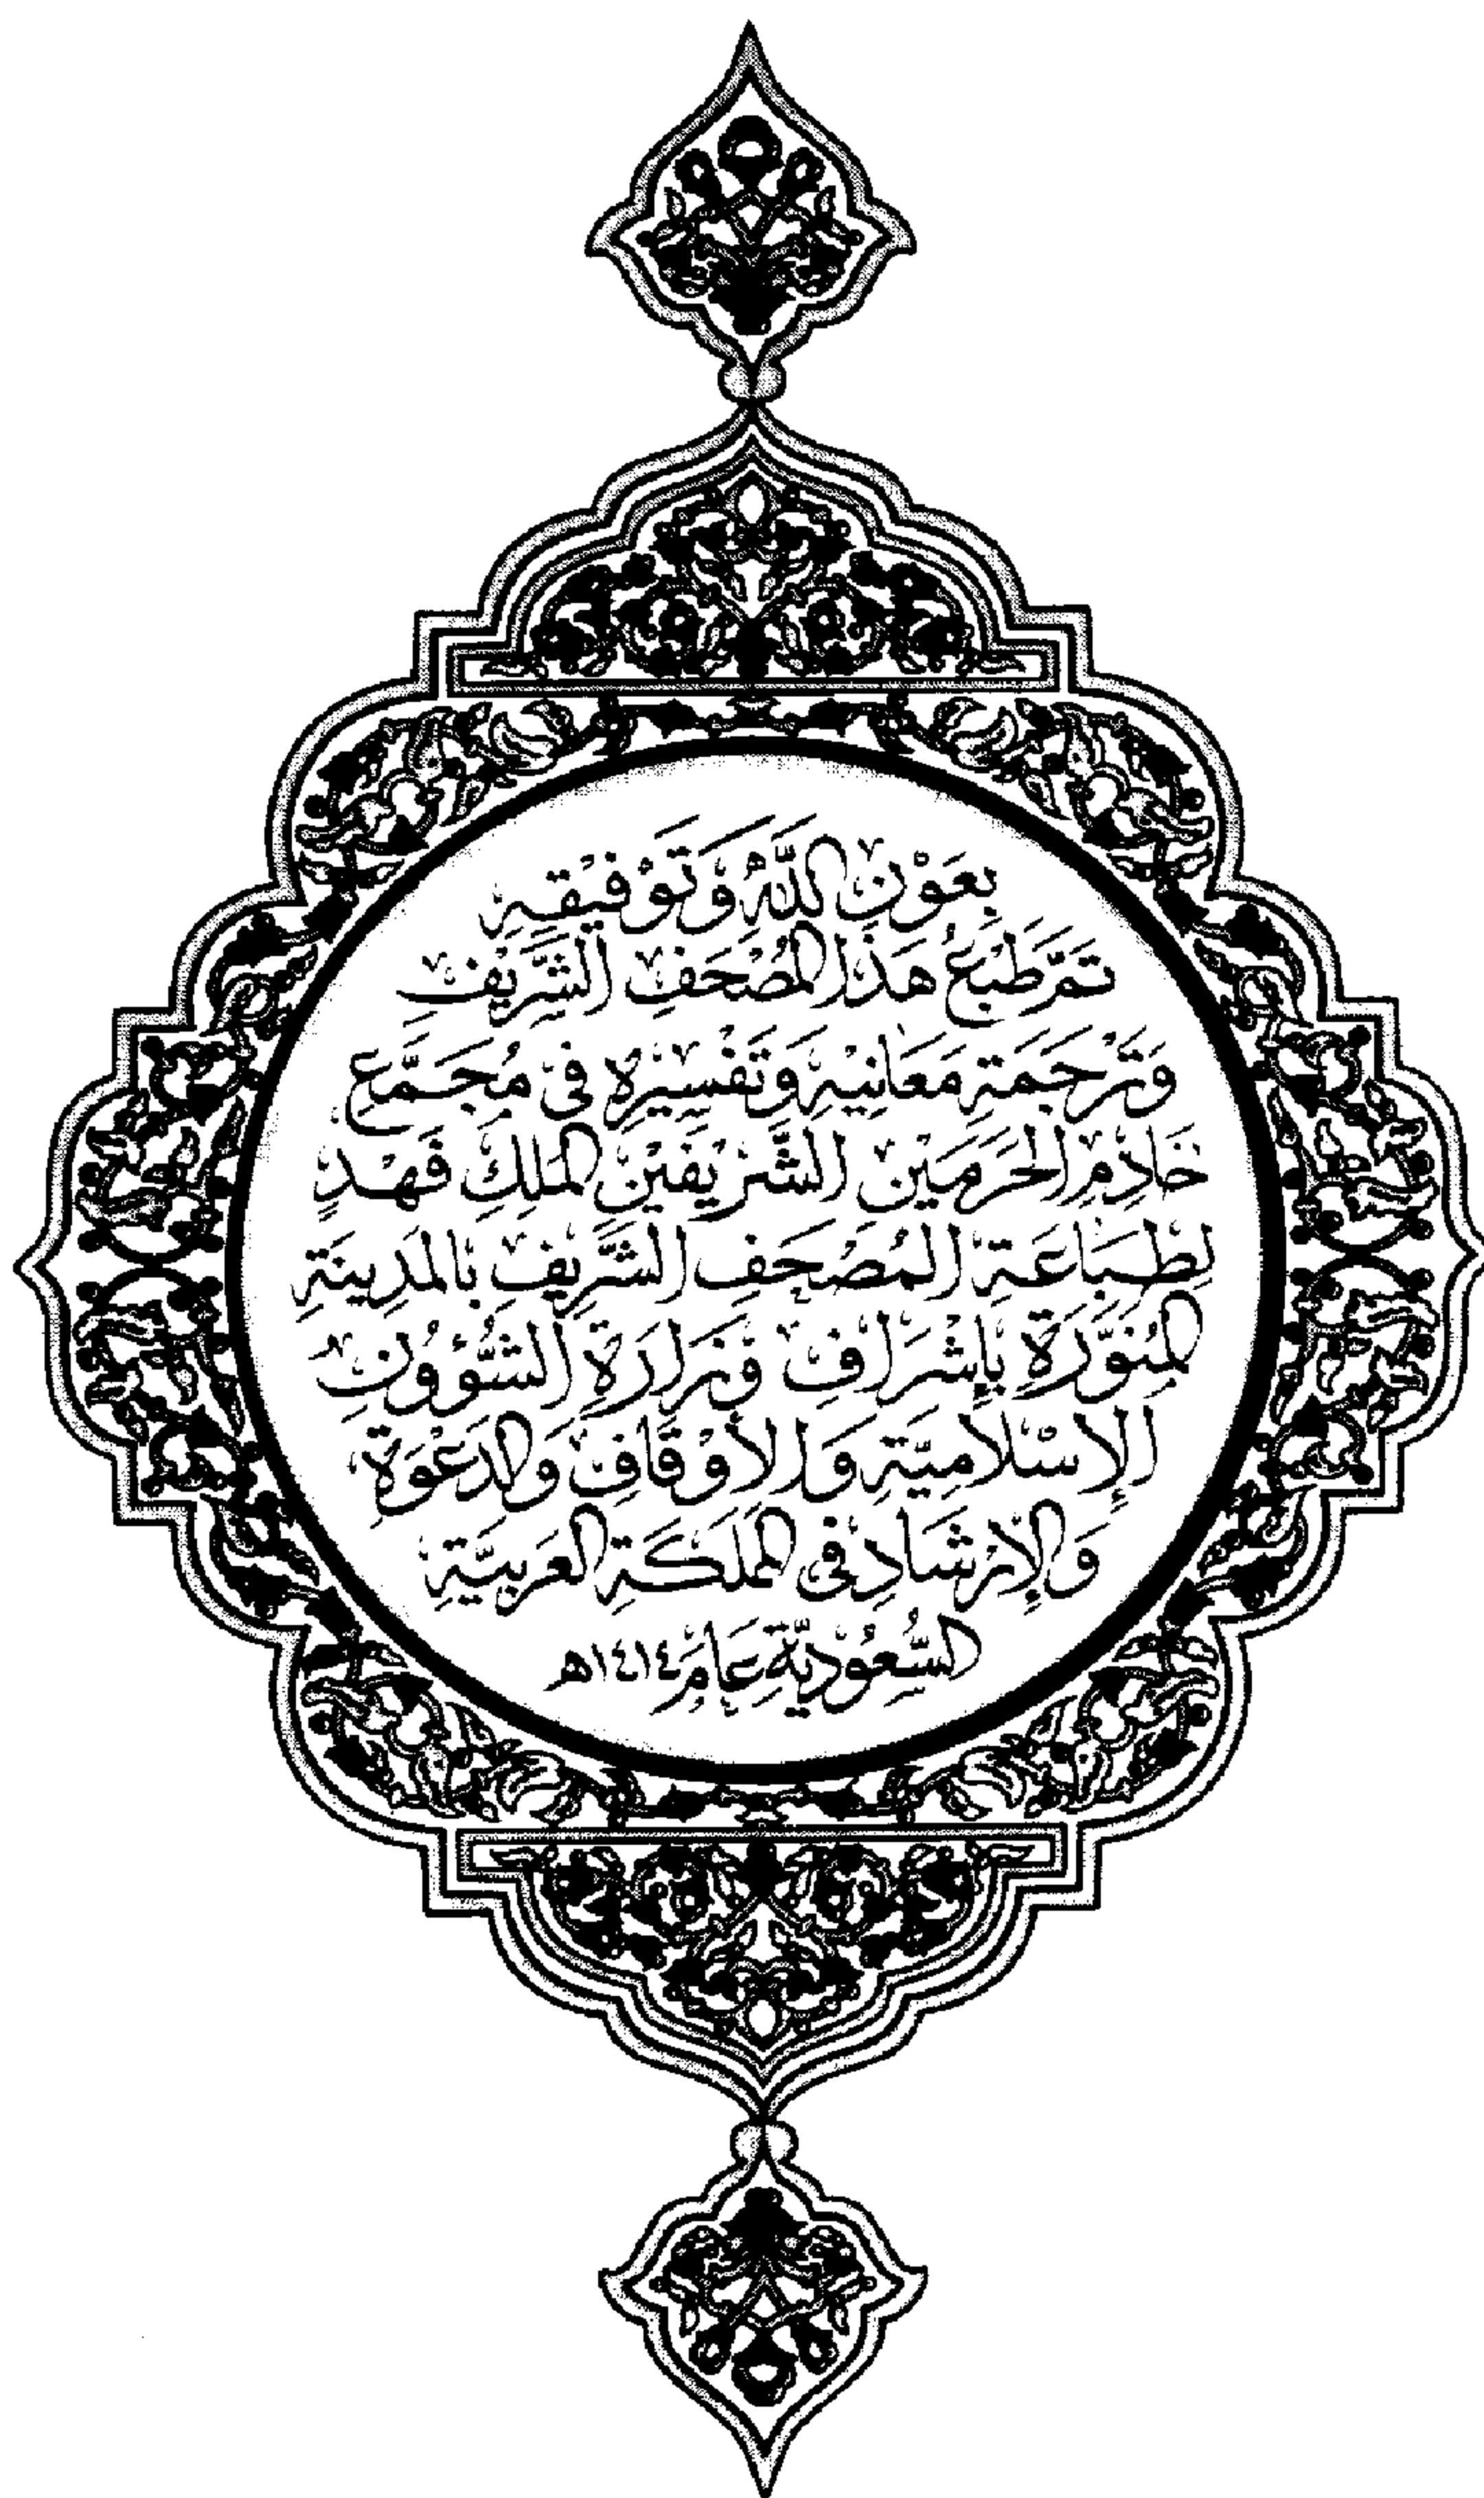 بِعَوْنِ اللَّهِ وَتَوْفِيْقِهِ
تَمَّ طَبْعُ هَذَا الْمُصْحَفِ الشَّرِيْفِ
وَتَرْجَمَةِ مَعَانِيْهِ وَتَفْسِيْرِهِ فِي مُجَمَّعِ
خَادِمِ الْحَرَمَيْنِ الشَّرِيْفَيْنِ الْمَلِكِ فَهْدٍ
لِطِبَاعَةِ الْمُصْحَفِ الشَّرِيْفِ بِالْمَدِيْنَةِ
الْمُنَوَّرَةِ بِإِشْرَافِ وَزَارَةِ الشُّؤُونِ
الْإِسْلَامِيَّةِ وَالْأَوْقَافِ وَالدَّعْوَةِ
وَالْإِرْشَادِ فِي الْمَمْلَكَةِ الْعَرَبِيَّةِ
السُّعُوْدِيَّةِ عَامَ